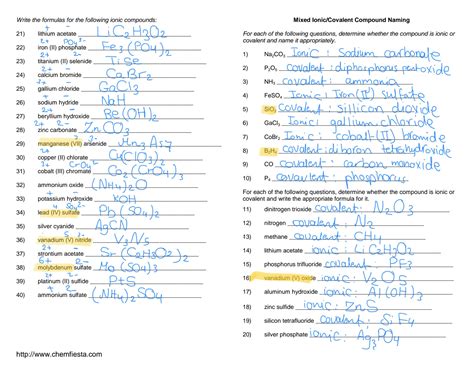 Write the formulas for the following ionic compounds:
21) lithium acetate LiC2H3O2
22) iron (II) phosphate Fe3(PO4)2
23) titanium (II) selenide TiSe
24) calcium bromide CaBr2
25) gallium chloride GaCl3
26) sodium hydride NaH
27) beryllium hydroxide Be(OH)2
28) zinc carbonate ZnCO3
29) manganese (VII) arsenide Mn3As7
30) copper (II) chlorate Cu(ClO3)2
31) cobalt (III) chromate Co2(CrO4)3
32) ammonium oxide (NH4)2O
33) potassium hydroxide KOH
34) lead (IV) sulfate Pb(SO4)2
35) silver cyanide AgCN
36) vanadium (V) nitride V3N5
37) strontium acetate Sr(C2H3O2)2
38) molybdenum sulfate Mo(SO4)3
39) platinum (II) sulfide PtS
40) ammonium sulfate (NH4)2SO4
http://www.chemfiesta.com
Mixed Ionic/Covalent Compound Naming
For each of the following questions, determine whether the compound is ionic or
covalent and name it appropriately.
1) Na2CO3 Ionic: Sodium carbonate
2) P2O5 covalent: diphosphorus pentoxide
3) NH3 covalent: ammonia
4) FeSO4 Ionic: Iron(II) sulfate
5) SiO2 Covalent: Sillicon dioxide
6) GaCl3 Ionic: gallium chloride
7) CoBr2 Ionic: cobalt(II) bromide
8) B2H4 Covalent: diboron tetrahydride
9) CO covalent: carbon monoxide
10) P4 covalent: phosphorus
For each of the following questions, determine whether the compound is ionic or
covalent and write the appropriate formula for it.
11) dinitrogen trioxide covalent: N2O3
12) nitrogen covalent: N2
13) methane covalent: CH4
14) lithium acetate ionic: LiC2H3O2
15) phosphorus trifluoride covalent: PF3
16) vanadium (V) oxide ionic: V2O5
17) aluminum hydroxide ionic: Al(OH)3
18) zinc sulfide ionic: ZnS
19) silicon tetrafluoride covalent: SiF4
20) silver phosphate ionic: Ag3PO4